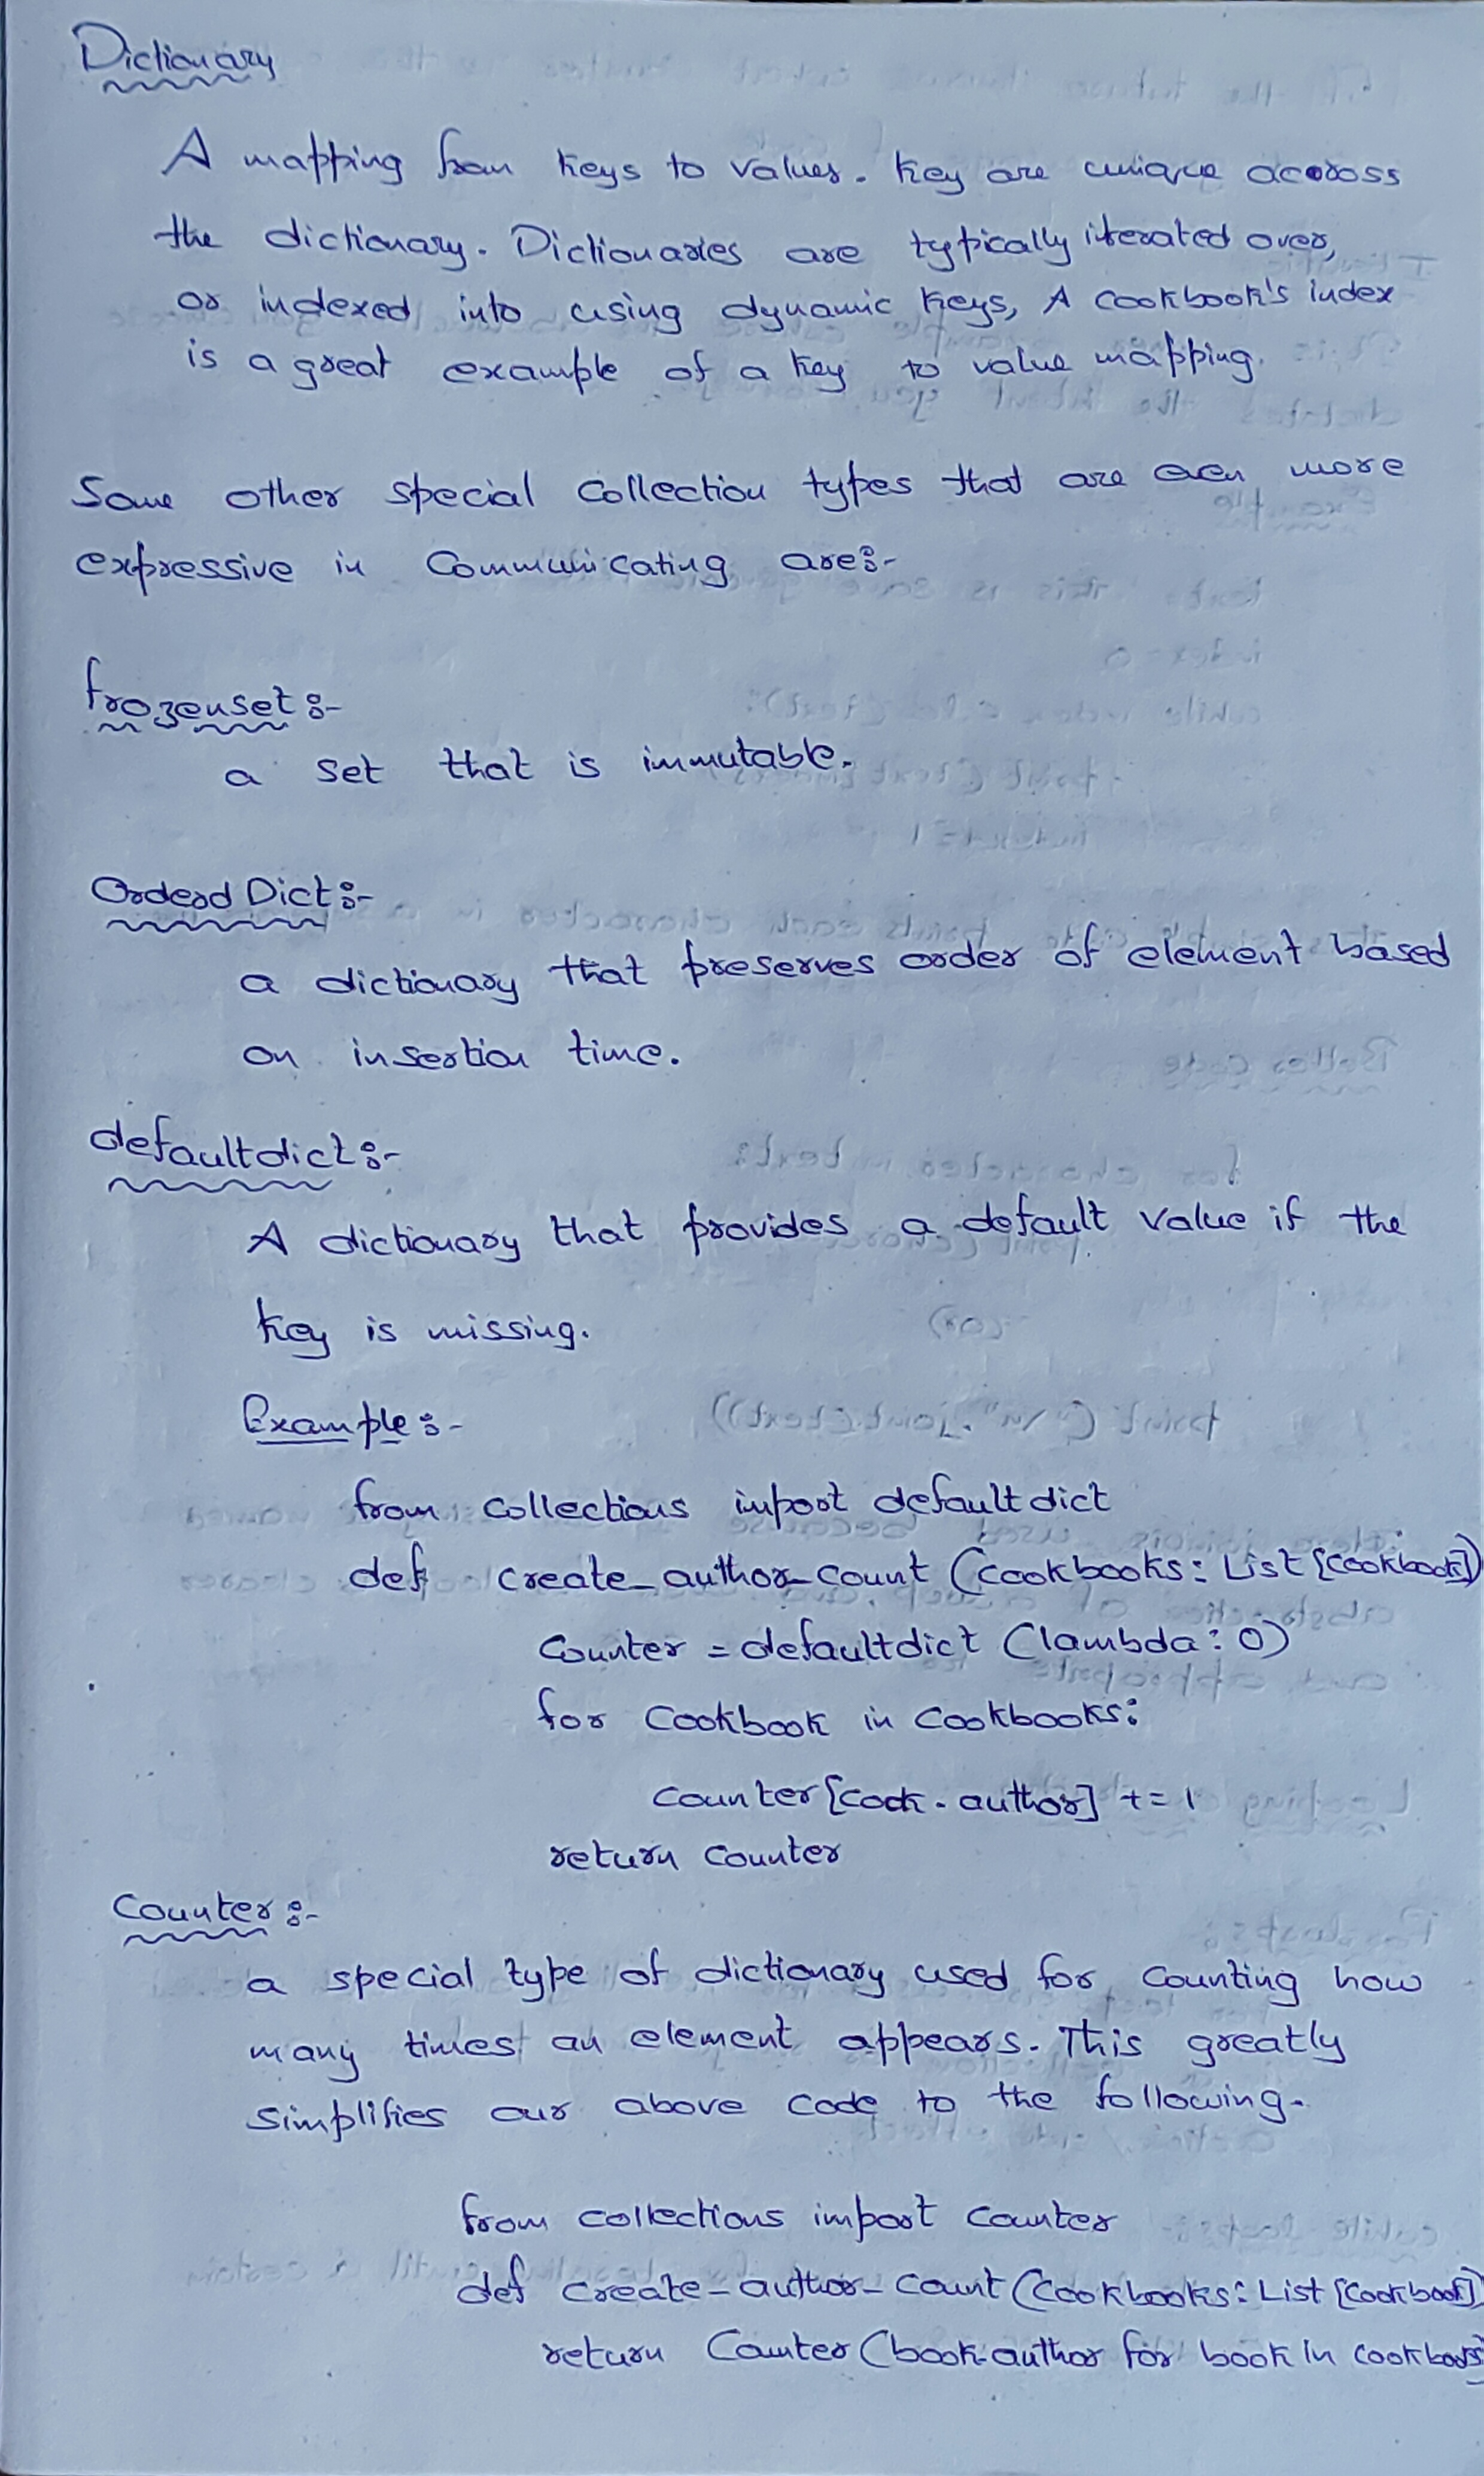 Dictionary
A mapping from keys to values. key are unique acoross
the dictionary. Dictionaries are typically iterated over,
or indexed into using dynamic keys, A cookbook's index
is a great example of a key to value mapping.
Some other special collection types that are even more
expressive in Communicating are:-
frozenset :-
a set that is immutable.
Orderd Dict :-
a dictionary that preserves order of element based
on insertion time.
defaultdict :-
A dictionary that provides a default value if the
key is missing.
Example :-
from collections import defaultdict
def create_author_count (cookbooks: List [cookbook])
Counter = defaultdict (lambda: 0)
for Cookbook in cookbooks:
counter [cook.author] += 1
return counter
Counter :-
a special type of dictionary used for counting how
many times an element appears. This greatly
simplifies our above code to the following.
from collections import counter
def create-author-count (cookbooks: List [cookbook])
return Counter (book.author for book in cookbooks)